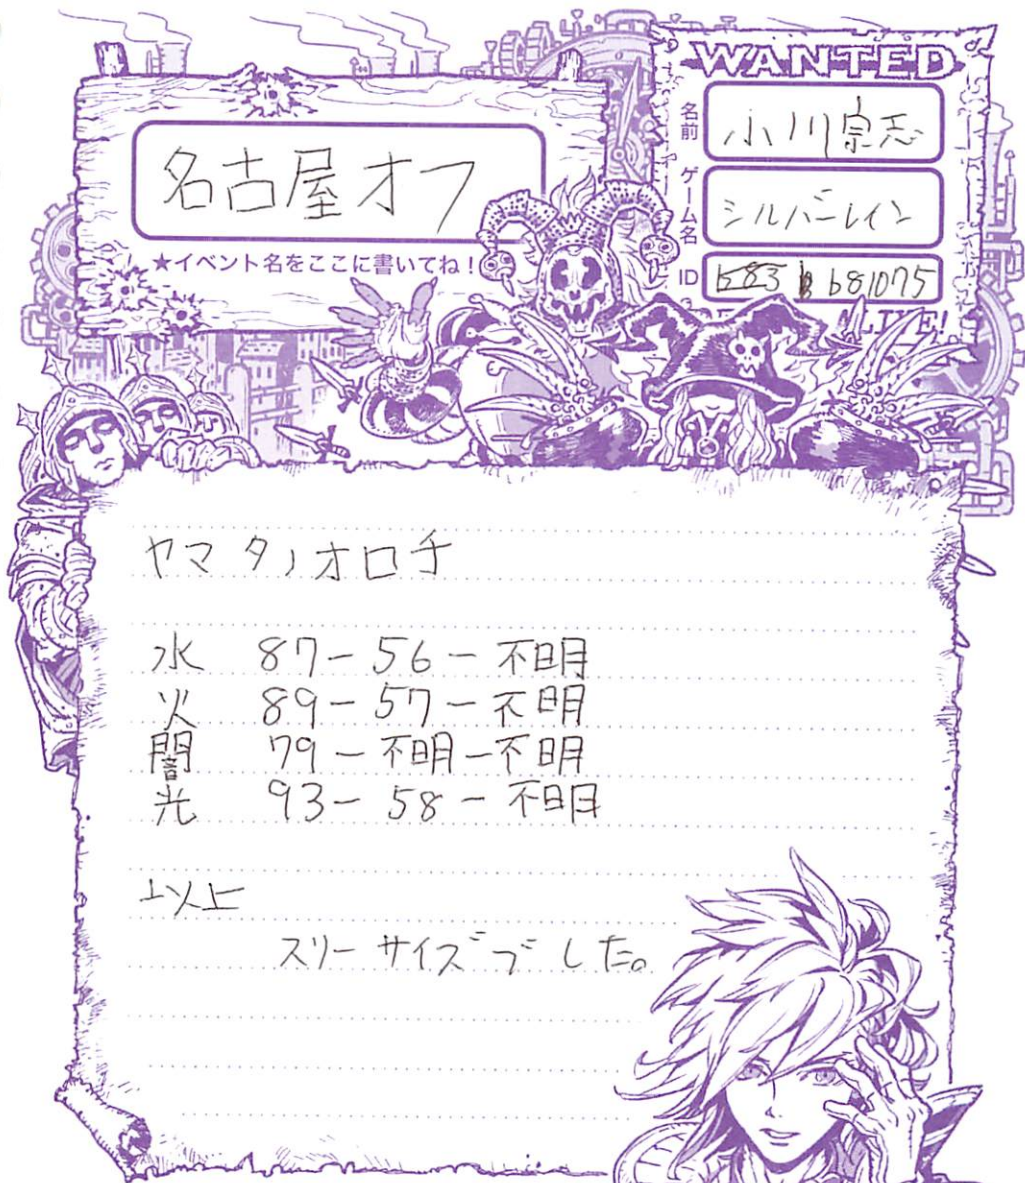 WANTED
名古屋オフ
★イベント名をここに書いてね!
名前 小川宗志
ゲーム名 シルバーレイン
ID 681075
ヤマタノオロチ
水 87-56-不明
火 89-57-不明
闇 79-不明-不明
光 93-58-不明
以上
スリーサイズでした。